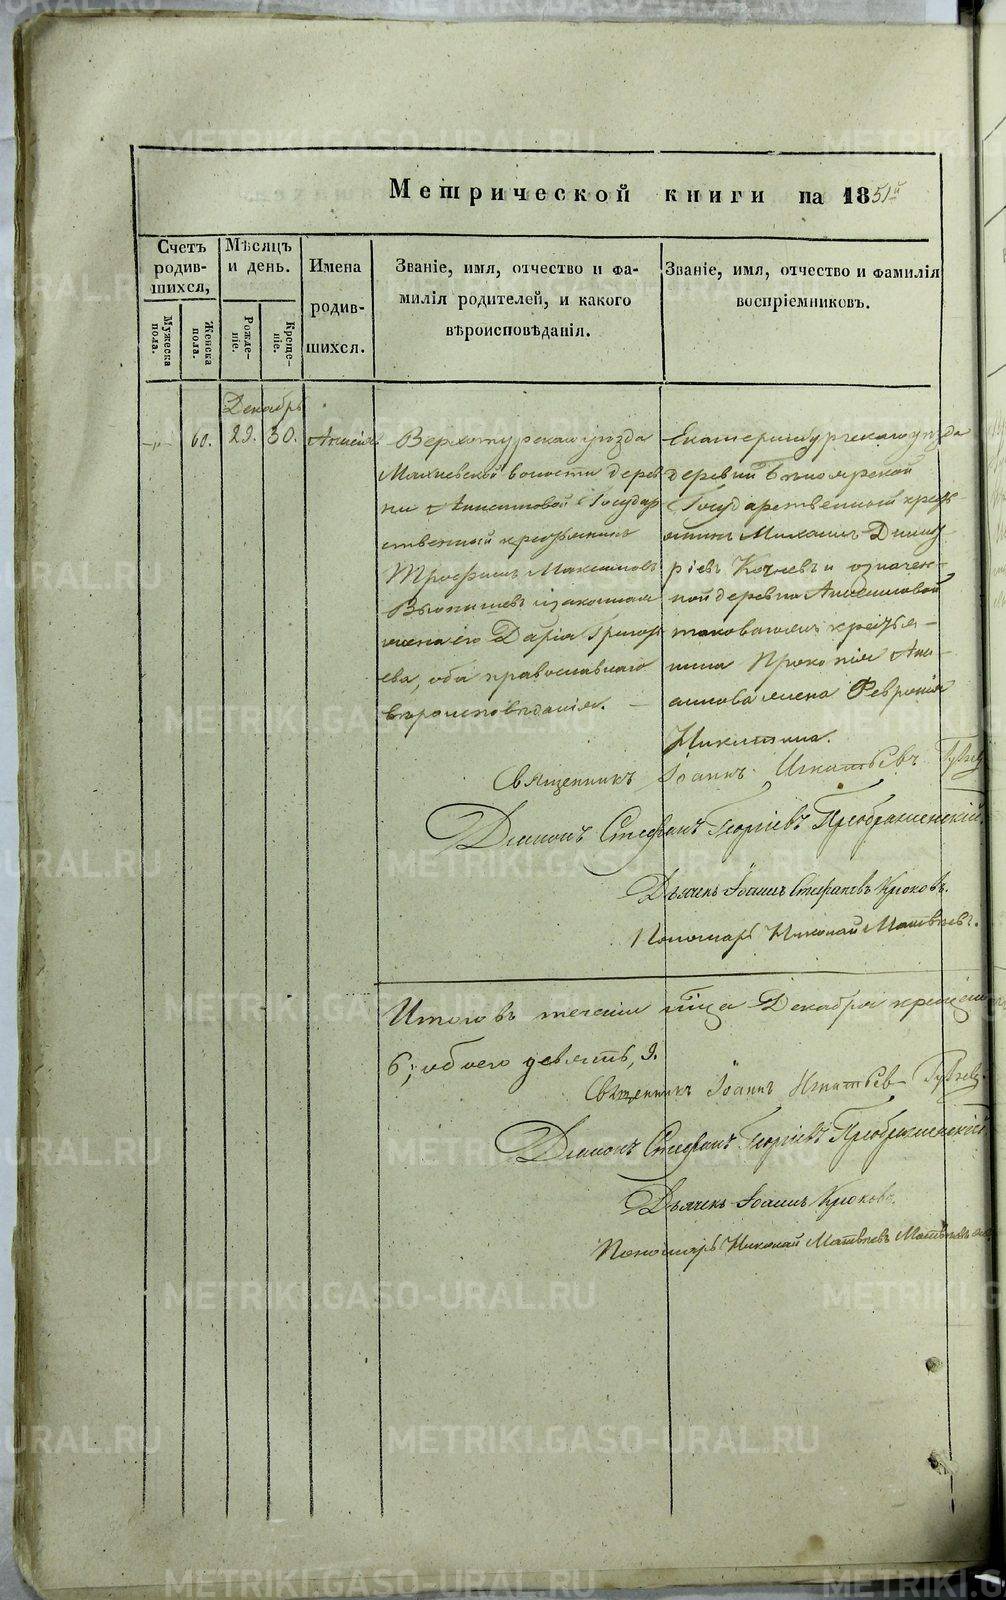 Метрической книги на 1851й
Счетъ родив-шихся,
Мужеска пола.
Женска пола.
Мѣсяцъ и день.
Рожде-ніе.
Креще-ніе.
Имена
родив-
шихся.
Званіе, имя, отчество и фа-
милія родителей, и какого
вѣроисповѣданія.
Званіе, имя, отчество и фамилія
воспріемниковъ.
Декабрь
60. 29. 30.
Верхотурскаго уѣзда
волости дерев
ни Государ
ственный крестьянинъ
Трофимъ Максимовъ
и законная
жена его Дарія Григорь
ева, оба православнаго
вѣроисповѣданія.
Екатеринбургскаго уѣзда
деревни Бѣлоярской
Государственный кресть
янинъ Михаилъ Димит
ріевъ и означен-
ной деревни
таковагожъ крестья-
нина Прокопія
жена Февронія
Никитина.
Священникъ Іоаннъ Игнатьевъ
Діаконъ Стефанъ Георгіевъ Преображенскій.
Дьячекъ Іоаннъ Стефановъ Крюковъ.
Пономарь Николай Матвѣевъ.
Итого въ теченіи мѣсяца Декабря крещено
6; обоего девять, 9.
Священникъ Іоаннъ Игнатьевъ
Діаконъ Стефанъ Георгіевъ Преображенскій
Дьячекъ Іоаннъ Крюковъ.
Пономарь Николай Матвѣевъ
METRIKI.GASO-URAL.RU